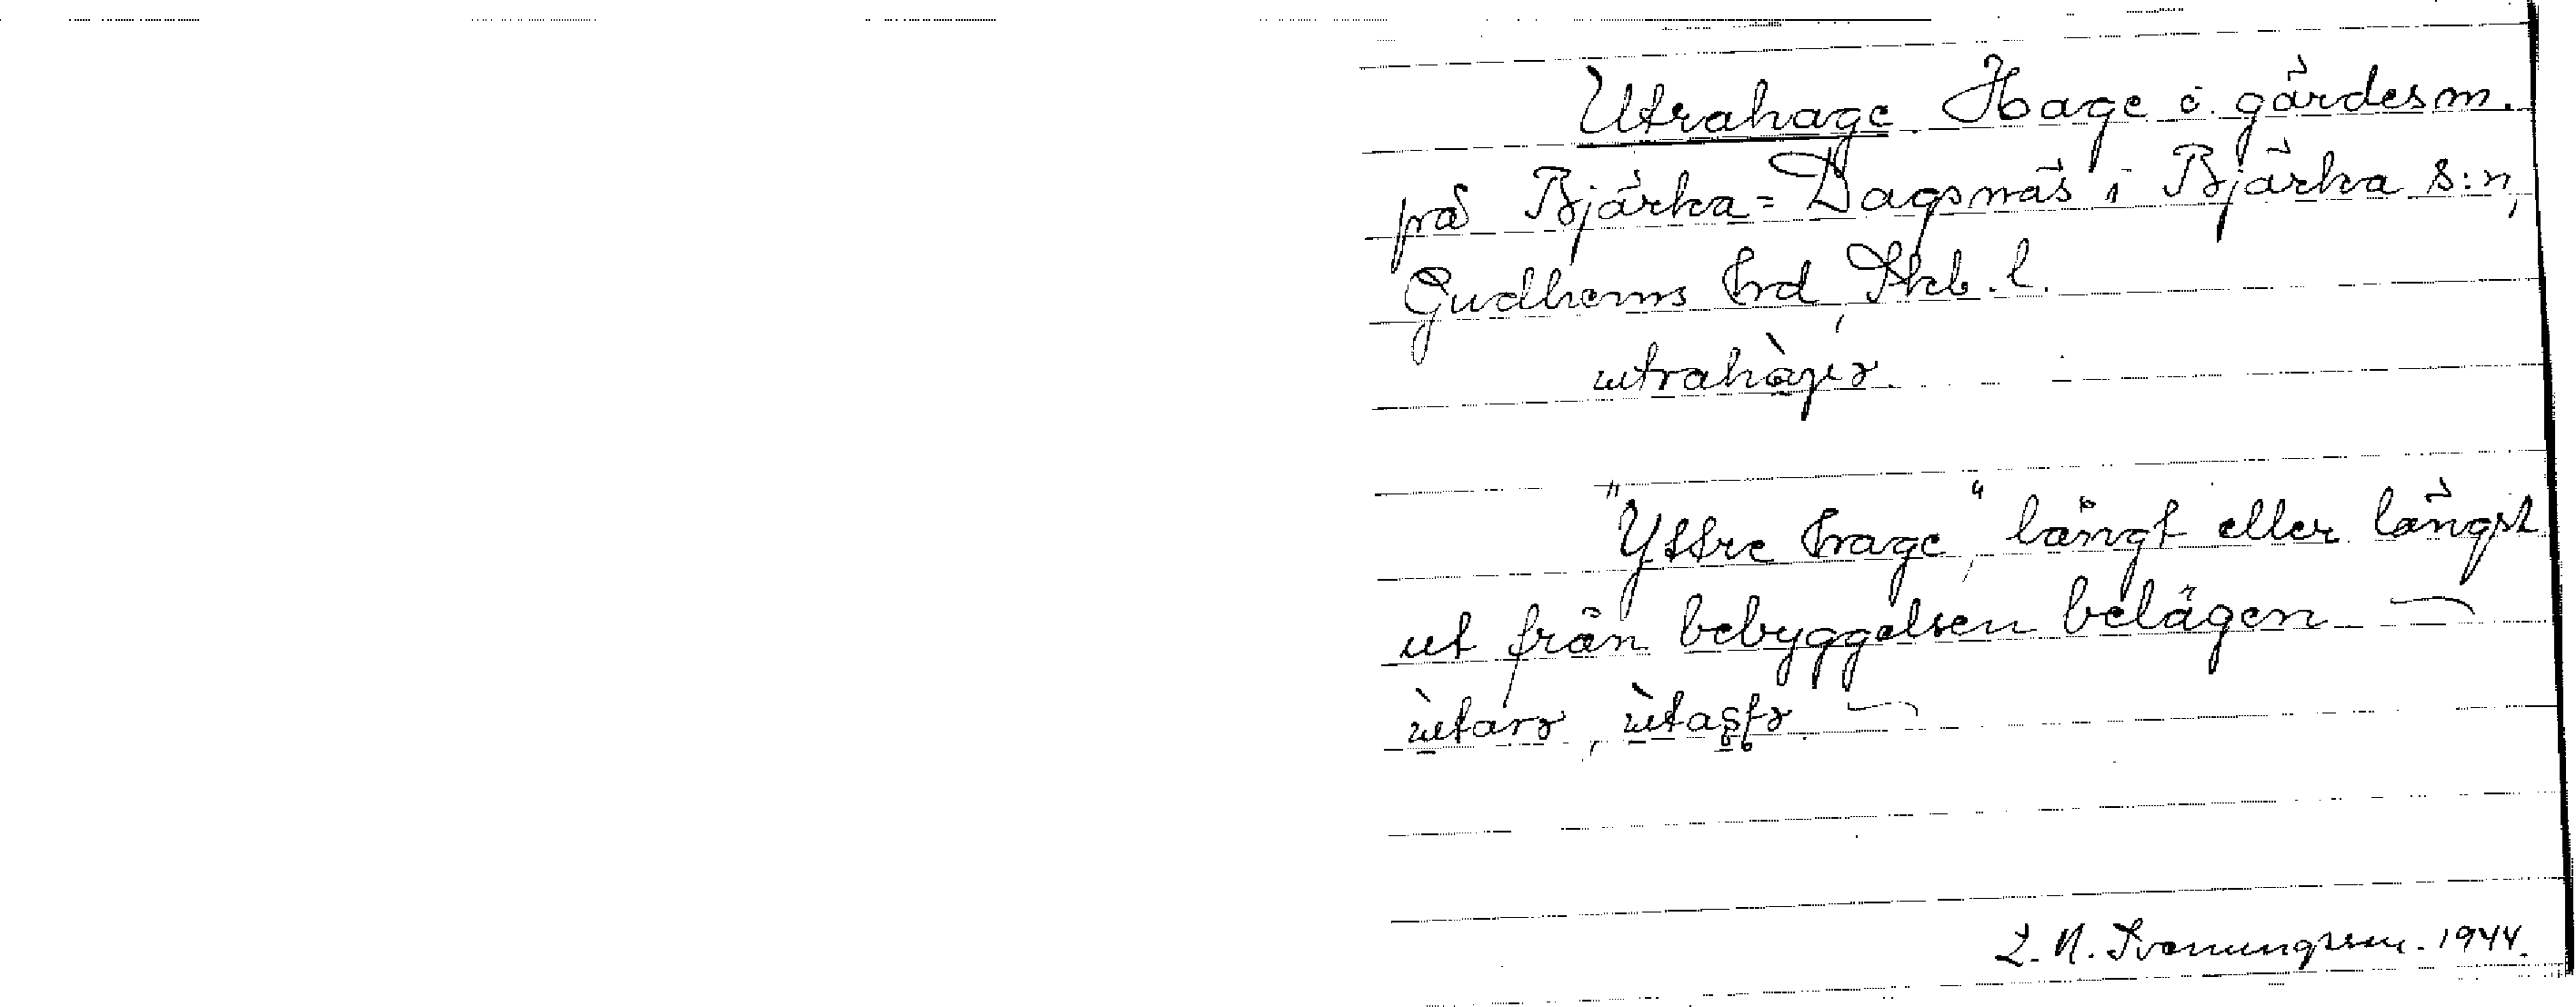 Utrahage. Hage i gärdesm.
på Bjärka=Dagsnäs i Bjärka s:n,
Gudhems hrd, Skb. l.
utrahàgə.
"Yttre hage", långt eller längst
ut från bebyggelsen belägen
ùtarə, ùtaʂʈə.
L. N. Svanungsson. 1944.